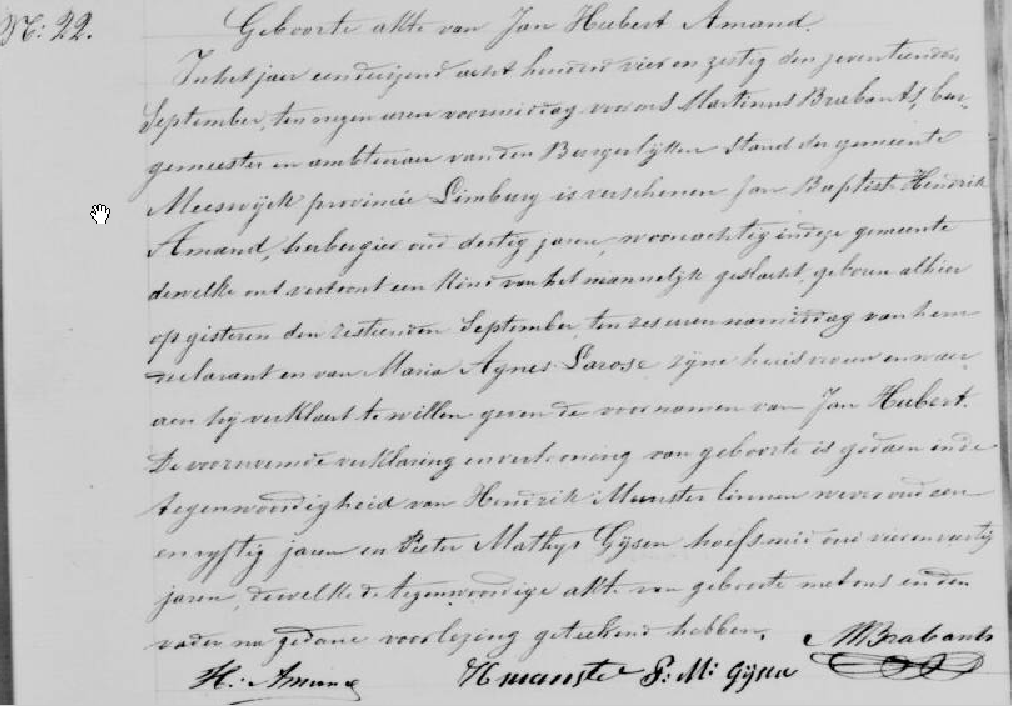 N: 22.
Geboorte akte van Jan Hubert Amand.
In het jaer eenduizend acht honderd vier en zestig den zeventienden
September, ten negen uren voormiddag voor ons Martinus Brabants, bur-
gemeester en ambtenaer van den Burgerlyken Stand der gemeente
Meeswyck provincie Limburg is verschenen Jan Baptist Hendrik
Amand, herbergier oud dertig jaren, woonachtig in deze gemeente
dewelke ons vertoont een kind van het mannelyk geslacht, geboren alhier
op gisteren den zestienden September, ten zes uren namiddag van hem
declarant en van Maria Agnes Larose zyne huisvrouw en waer
aen hy verklaert te willen geven de voornamen van Jan Hubert.
De voornoemde verklaring en vertooning van geboorte is gedaen in de
tegenwoordigheid van Hendrik Munster linnen wever oud een
en vyftig jaren en Pieter Mathys Gysen hoefsmid oud vier en veertig
jaren, dewelke de tegenwoordige akte van geboorte met ons en den
vader na gedane voorlezing geteekend hebben.
MBrabants
H: Amand
H munster P: M: Gysen